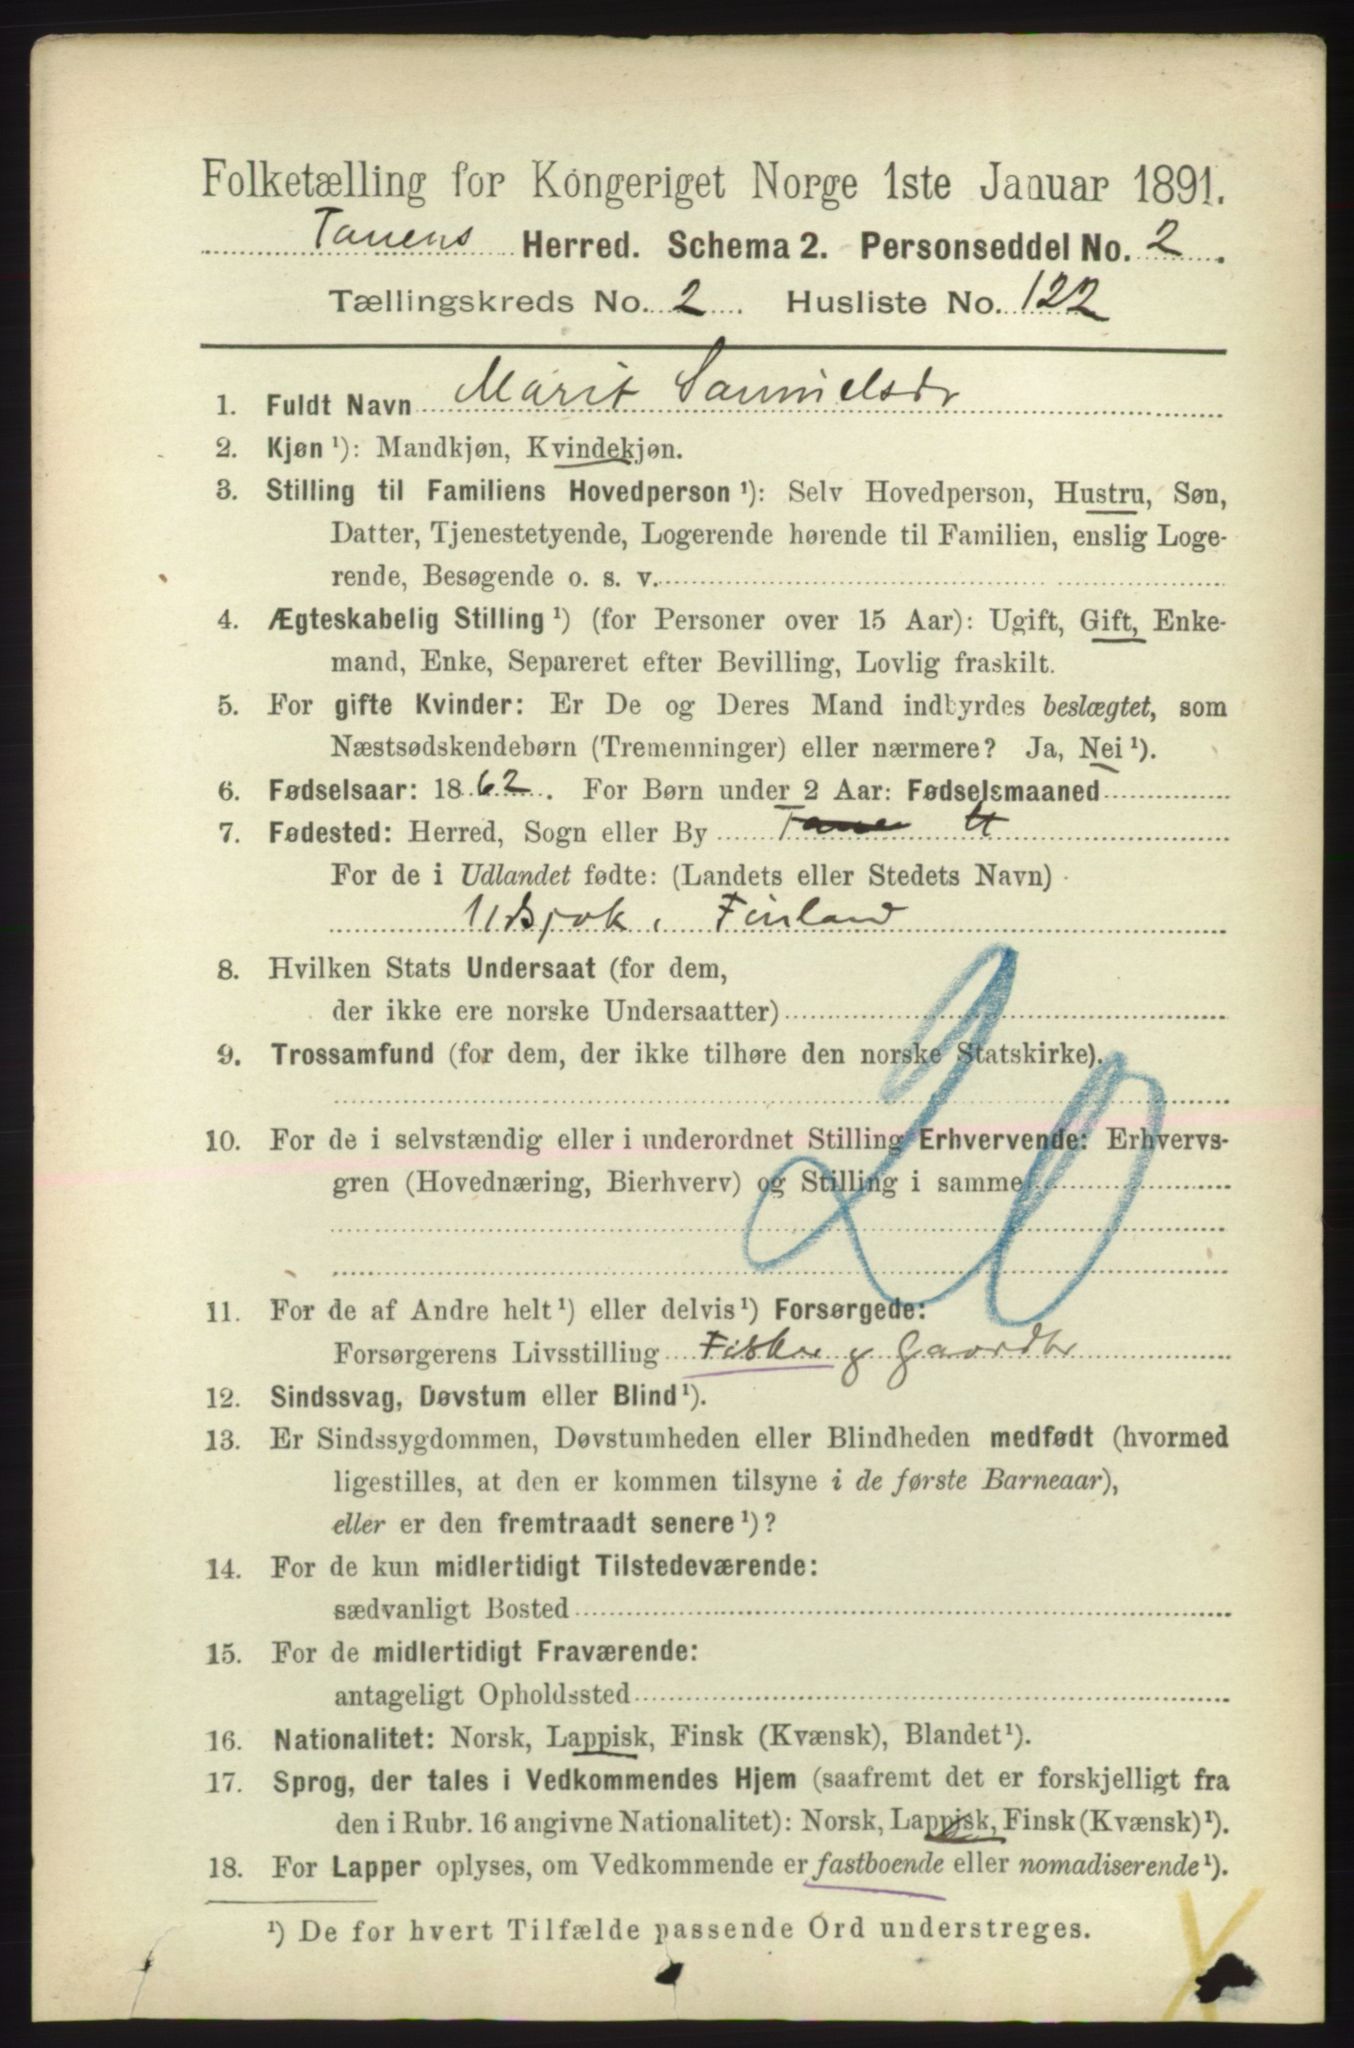 Folketælling for Kongeriget Norge 1ste Januar 1891.
Tanens Herred. Schema 2. Personseddel No. 2.
Tællingskreds No. 2. Husliste No. 122
1. Fuldt Navn Marit Samuelsdr
2. Kjøn ¹): Mandkjøn, Kvindekjøn.
3. Stilling til Familiens Hovedperson ¹): Selv Hovedperson, Hustru, Søn,
Datter, Tjenestetyende, Logerende hørende til Familien, enslig Loge-
rende, Besøgende o. s. v.
4. Ægteskabelig Stilling ¹) (for Personer over 15 Aar): Ugift, Gift, Enke-
mand, Enke, Separeret efter Bevilling, Lovlig fraskilt.
5. For gifte Kvinder: Er De og Deres Mand indbyrdes beslægtet, som
Næstsødskendebørn (Tremenninger) eller nærmere? Ja, Nei ¹).
6. Fødselsaar: 1862. For Børn under 2 Aar: Fødselsmaaned
7. Fødested: Herred, Sogn eller By Tanen U
For de i Udlandet fødte: (Landets eller Stedets Navn)
Utsjok, Finland
8. Hvilken Stats Undersaat (for dem,
der ikke ere norske Undersaatter)
9. Trossamfund (for dem, der ikke tilhøre den norske Statskirke).
20
10. For de i selvstændig eller i underordnet Stilling Erhvervende: Erhvervs-
gren (Hovednæring, Bierhverv) og Stilling i samme
11. For de af Andre helt ¹) eller delvis ¹) Forsørgede:
Forsørgerens Livsstilling Fisker og Gaardbr
12. Sindssvag, Døvstum eller Blind ¹).
13. Er Sindssygdommen, Døvstumheden eller Blindheden medfødt (hvormed
ligestilles, at den er kommen tilsyne i de første Barneaar),
eller er den fremtraadt senere ¹)?
14. For de kun midlertidigt Tilstedeværende:
sædvanligt Bosted
15. For de midlertidigt Fraværende:
antageligt Opholdssted
16. Nationalitet: Norsk, Lappisk, Finsk (Kvænsk), Blandet ¹).
17. Sprog, der tales i Vedkommendes Hjem (saafremt det er forskjelligt fra
den i Rubr. 16 angivne Nationalitet): Norsk, Lappisk, Finsk (Kvænsk) ¹).
18. For Lapper oplyses, om Vedkommende er fastboende eller nomadiserende ¹).
¹) De for hvert Tilfælde passende Ord understreges.